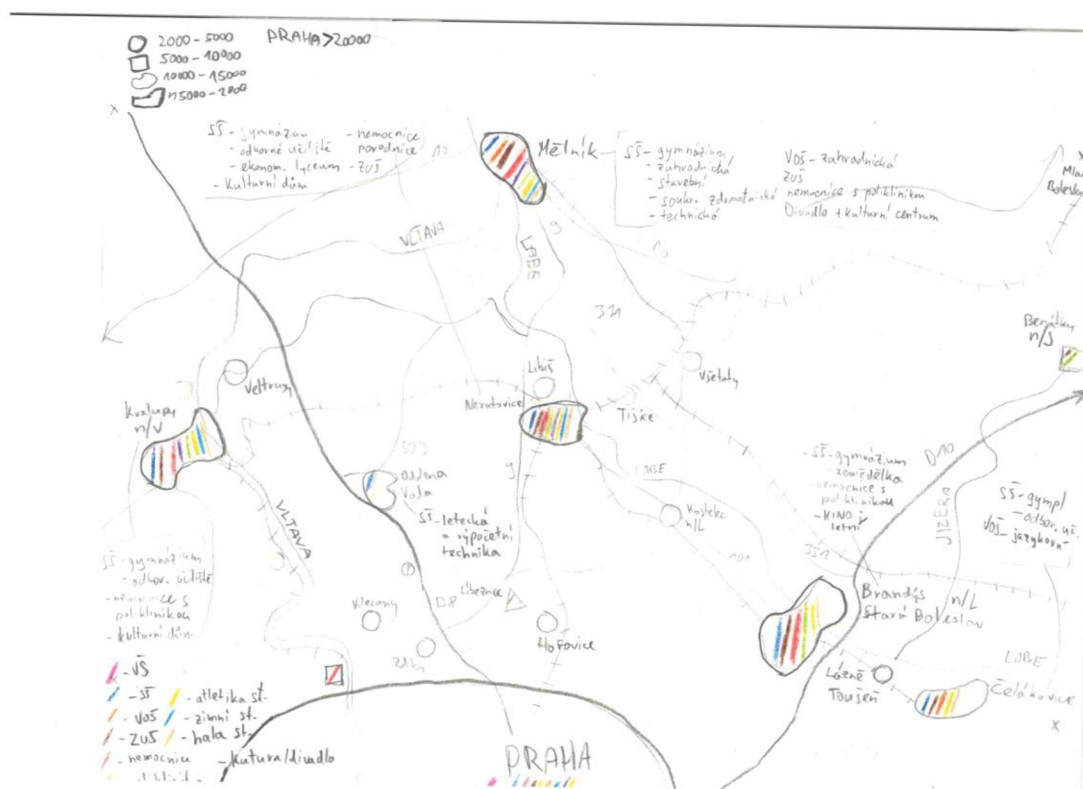 2000 - 5000
PRAHA > 20000
5000 - 10000
10000 - 15000
15000 - 2000
SŠ - gymnázium
- odborné učiliště
- ekonom. lyceum
- Kulturní dům
- nemocnice
porodnice
- ZUŠ
10
Mělník
SŠ - gymnázium
- zahradnická
- stavební
- soukr. zdravotnická
- technická
VOŠ - zahradnická
ZUŠ
nemocnice s poliklinikou
Divadlo + kulturní centrum
x
x
VLTAVA
LABE
9
331
Benátky
n/J
Veltrusy
Libiš
Všetaty
Kralupy
n/V
Neratovice
Tišice
Odolena
Voda
SŠ - letecká
a výpočetní
technika
9
LABE
Kostelec
n/L
- SŠ - gymnázium
- zemědělka
- nemocnice s
poliklinikou
- KINO
letní
D10
JIZERA
SŠ - gympl
- odbor. uč.
VOŠ - jazyková
VLTAVA
SŠ - gymnázium
- odbor. učiliště
- nemocnice s
poliklinikou
- kulturní dům
Klecany
D8
Líbeznice
Zdiby
Hovorčovice
101
331
Brandýs n/L
Stará Boleslav
LABE
Lázně
Toušeň
Čelákovice
x
- VŠ
- SŠ
- VOŠ
- ZUŠ
- nemocnice
- atletika st.
- zimní st.
- hala st.
- kutura/divadlo
PRAHA